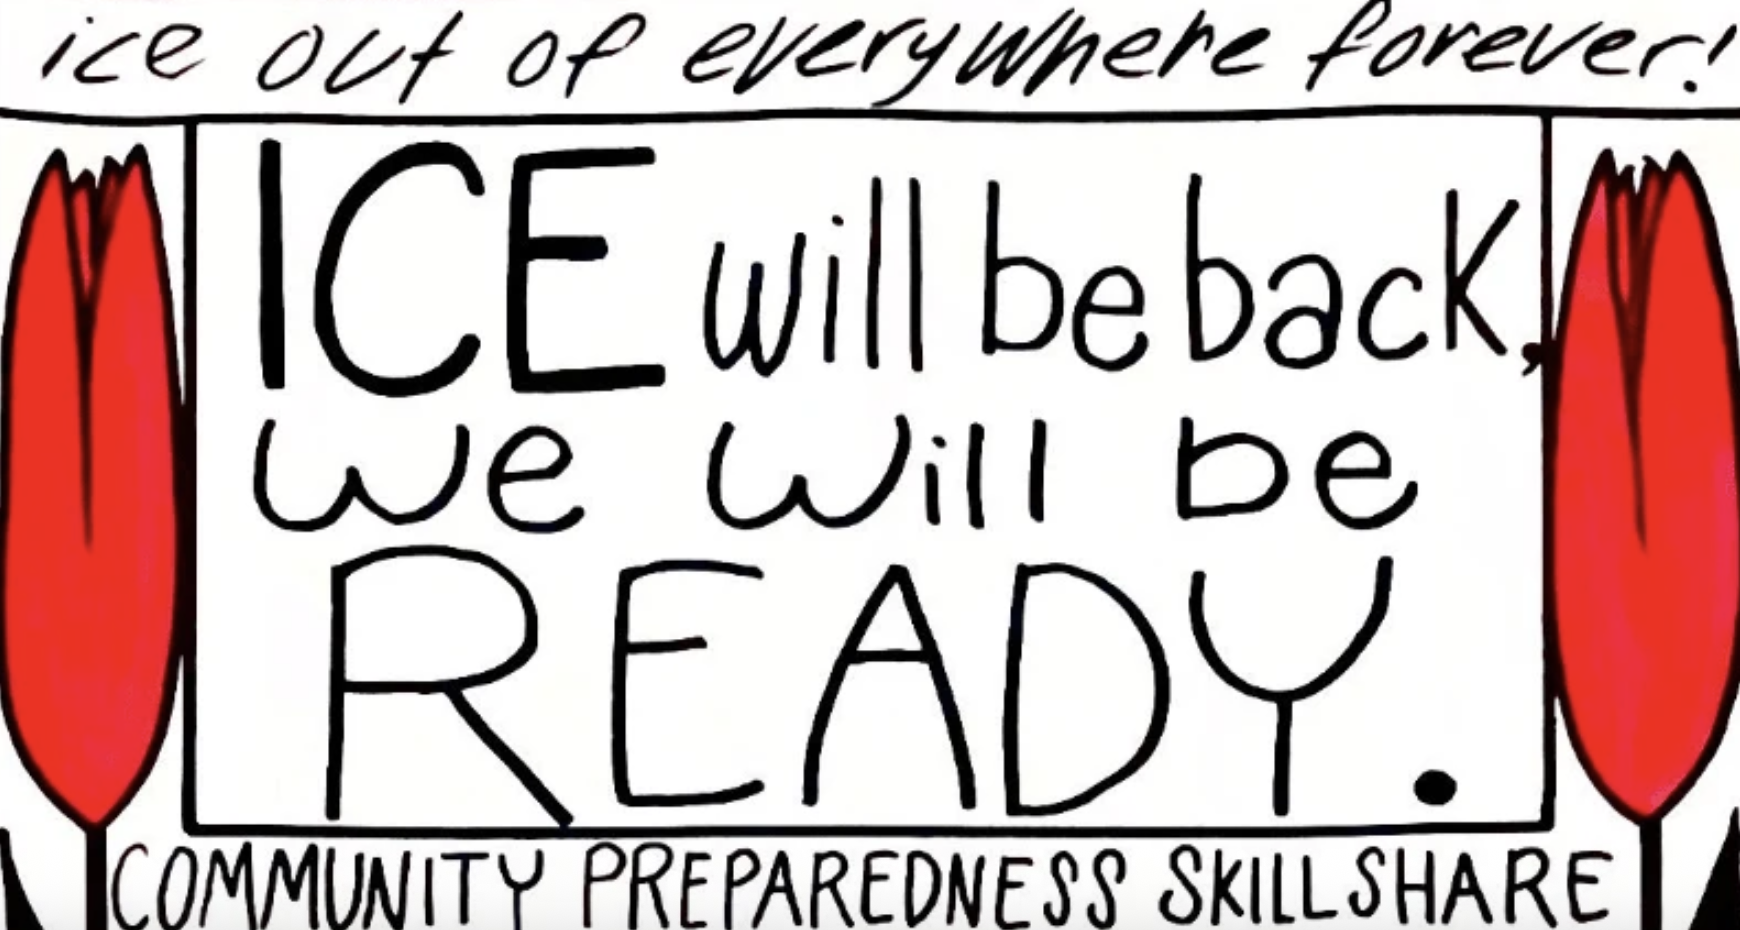 ice out of everywhere forever!
ICE will be back,
we will be
READY.
COMMUNITY PREPAREDNESS SKILLSHARE